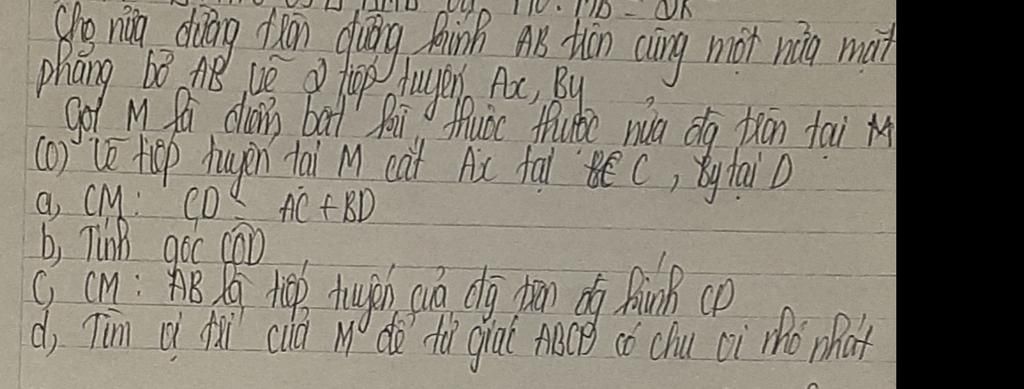 MB = OK
Cho nửa đường tròn đường kính AB trên cùng một nửa mặt
phẳng bờ AB vẽ 2 tiếp tuyến Ax, By
Gọi M là điểm bất kì thuộc thuộc nửa đg tròn tại M
(O) vẽ tiếp tuyến tại M cắt Ax tại C, By tại D
a, CM: CD = AC + BD
b, Tính góc COD
c, CM: AB là tiếp tuyến của đg tròn đg kính CD
d, Tìm vị trí của M để tứ giác ABCD có chu vi nhỏ nhất